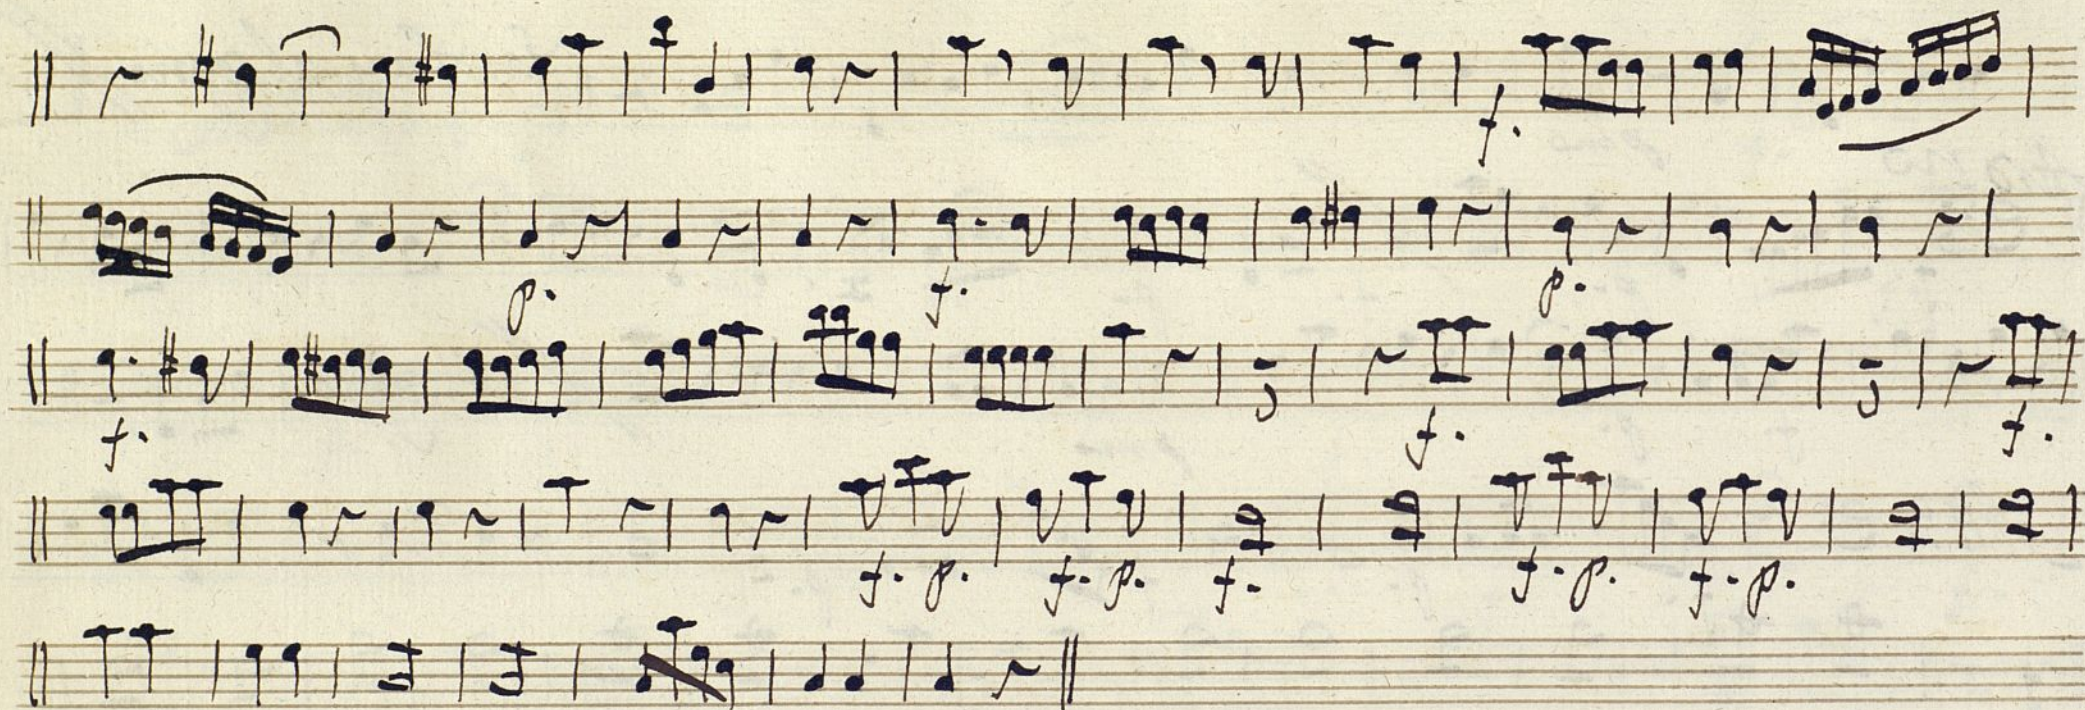 f.
p. f. p.
f. f. f.
f. p. f. p. f. f. p. f. p.